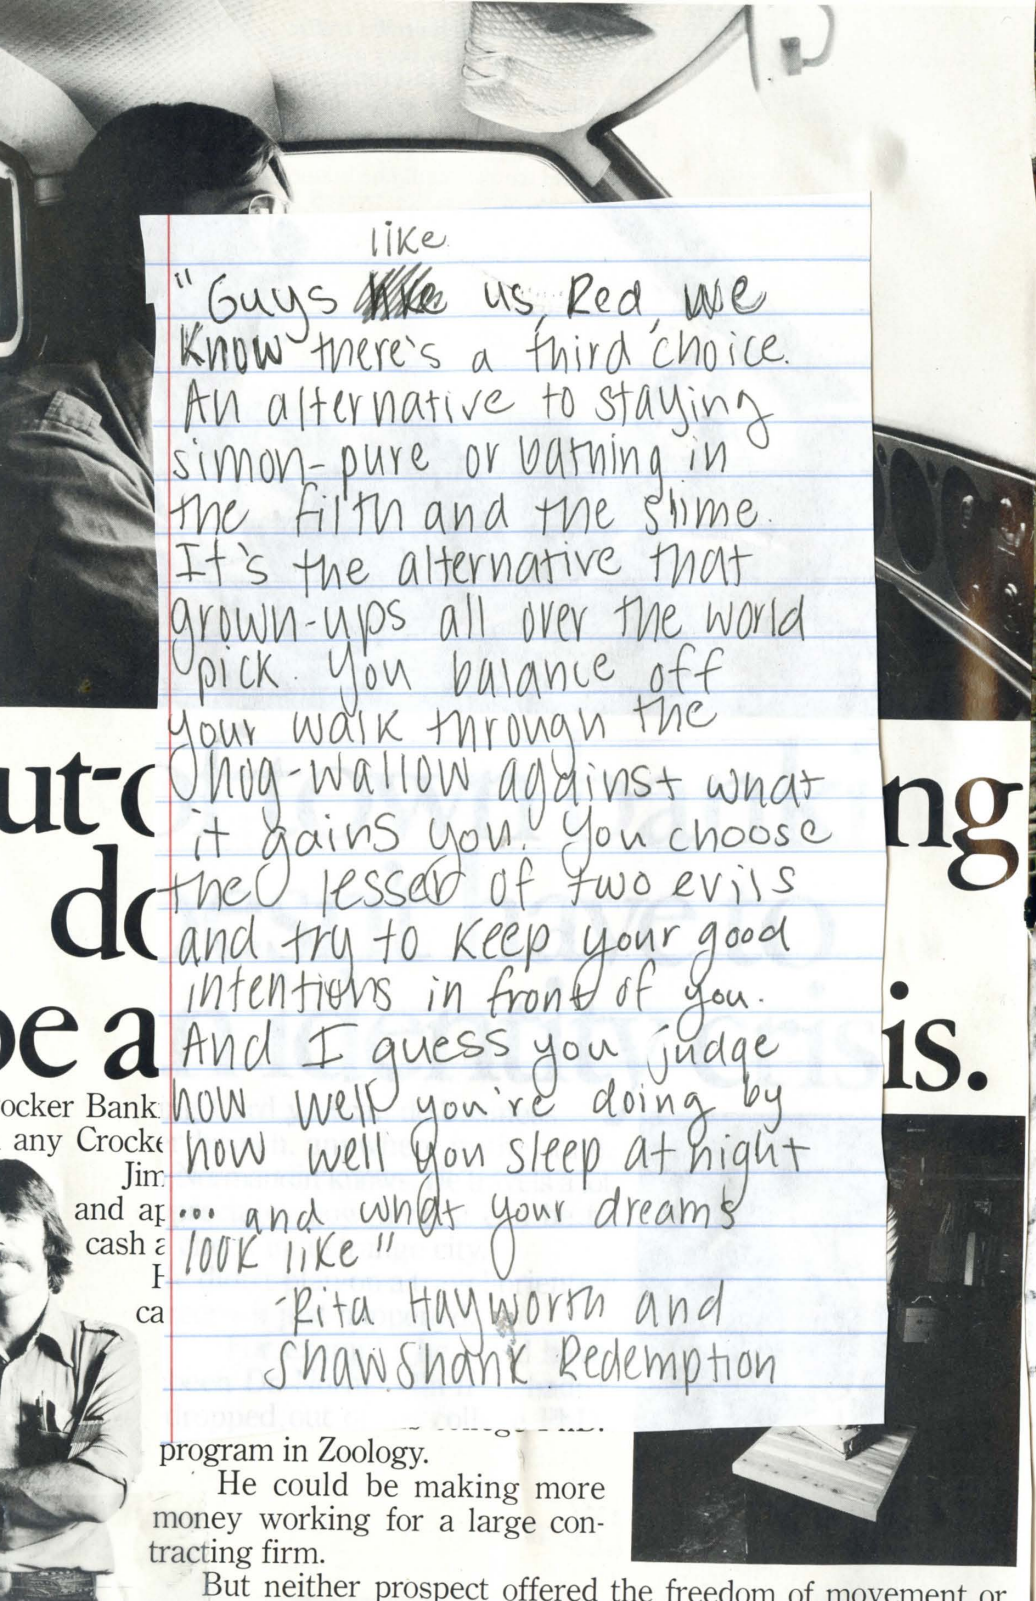 like
"Guys us, Red, we
know there's a third choice.
An alternative to staying
simon-pure or bathing in
the filth and the slime.
It's the alternative that
grown-ups all over the world
pick. You balance off
your walk through the
hog-wallow against what
it gains you. You choose
the lesser of two evils
and try to keep your good
intentions in front of you.
And I guess you judge
how well you're doing by
how well you sleep at night
... and what your dreams
look like"
-Rita Hayworth and
Shawshank Redemption
ng
is.
be a
ocker Bank
any Crocke
Jim
and ap
cash a
ca
program in Zoology.
He could be making more
money working for a large con-
tracting firm.
But neither prospect offered the freedom of movement or